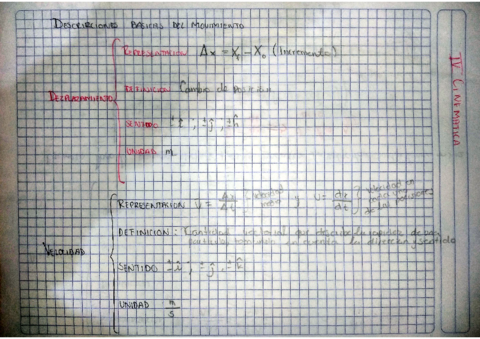 DESCRIPCIONES BÁSICAS DEL MOVIMIENTO
IV. CINEMÁTICA
DEZPLAZAMIENTO
REPRESENTACION Δx = Xf - X0 (Incremento)
DEFINICION Cambio de Posición
SENTIDO ± î ; ± ĵ ; ± k̂
UNIDAD m.
VELOCIDAD
REPRESENTACION V = Δx/Δt Velocidad media y V = dx/dt Velocidad en
DEFINICION: Cantidad vectorial que describe la rapidez de
particula tomando en cuenta la direccion y sentido
SENTIDO ± î ; ± ĵ ; ± k̂
UNIDAD m/s